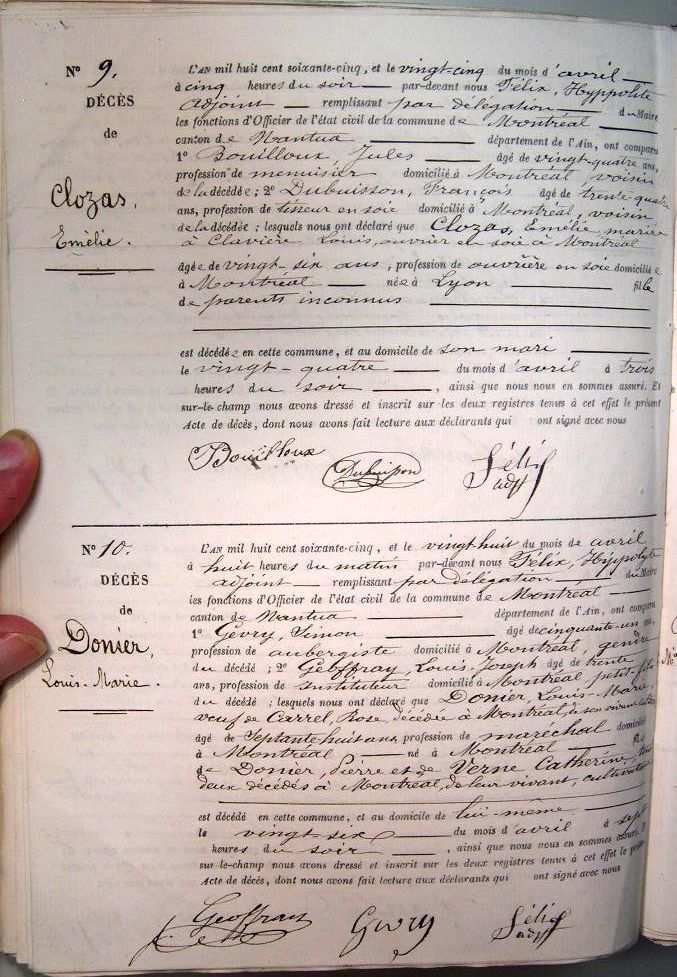 N° 9.
DÉCÈS
de
Clozas,
Emèlie.
L'AN mil huit cent soixante-cinq, et le vingt-cinq du mois d'avril
à cinq heures du soir par-devant nous Félix, Hyppolite
adjoint remplissant par délégation du Maire
les fonctions d'Officier de l'état civil de la commune de Montréal
canton de Nantua département de l'Ain, ont comparu
1° Bouilloux, Jules âgé de vingt-quatre ans,
profession de menuisier domicilié à Montréal, voisin
de la décédée; 2° Dubuisson, François âgé de trente quatre
ans, profession de tisseur en soie domicilié à Montréal, voisin
de la décédée; lesquels nous ont déclaré que Clozas, Emélie, mariée
à Clavière Louis, ouvrier en soie à Montréal
âgée de vingt-six ans, profession de ouvrière en soie domiciliée
à Montréal née à Lyon fille
de parents inconnus
est décédée en cette commune, et au domicile de son mari
le vingt-quatre du mois d'avril à trois
heures du soir, ainsi que nous nous en sommes assuré. Et
sur-le-champ nous avons dressé et inscrit sur les deux registres tenus à cet effet le présent
Acte de décès, dont nous avons fait lecture aux déclarants qui ont signé avec nous
Bouilloux Dubuisson Félix
adjt
N° 10.
DÉCÈS
de
Donier,
Louis-Marie.
L'AN mil huit cent soixante-cinq, et le vingt huit du mois de avril
à huit heures du matin par-devant nous Félix, Hyppolyte
adjoint remplissant par délégation du Maire
les fonctions d'Officier de l'état civil de la commune de Montréal
canton de Nantua département de l'Ain, ont comparu
1° Gevry, Simon âgé de cinquante-un ans,
profession de aubergiste domicilié à Montréal, gendre
du décédé; 2° Geoffray, Louis-Joseph âgé de trente
ans, profession de instituteur domicilié à Montréal petit-fils
du décédé; lesquels nous ont déclaré que Donier, Louis-Marie,
veuf de Carrel, Rose, décédée à Montréal, à son vivant
âgé de septante-huit ans, profession de maréchal domicilié
à Montréal né à Montréal fils
de Donier, Pierre et de Verne Catherine, tous
deux décédés à Montréal, de leur vivant, cultivateurs
est décédé en cette commune, et au domicile de lui-même
le vingt-six du mois d'avril à sept
heures du soir, ainsi que nous nous en sommes assuré. Et
sur-le-champ nous avons dressé et inscrit sur les deux registres tenus à cet effet le présent
Acte de décès, dont nous avons fait lecture aux déclarants qui ont signé avec nous
Geoffray Gevry Félix
adjt